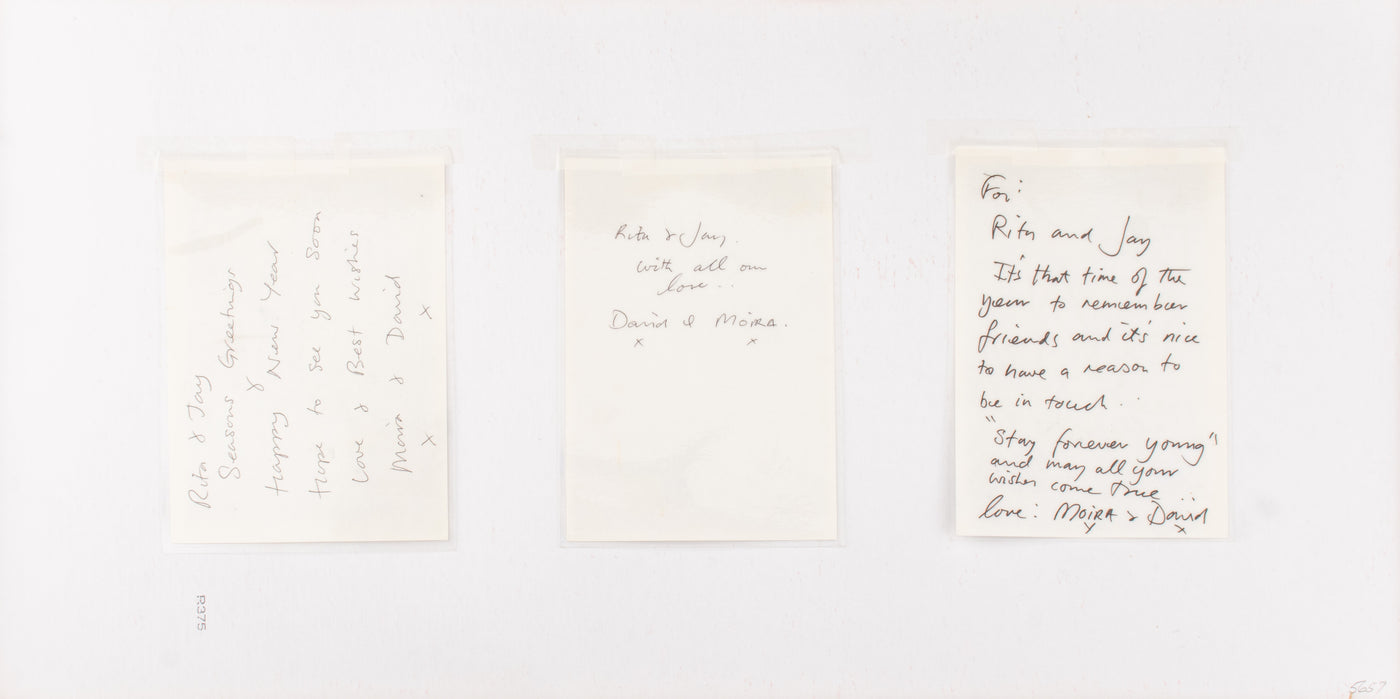 Rita & Jay
Seasons Greetings
&
Happy New Year
Hope to see you soon
Love & Best Wishes
Moira & David
x x
Rita & Jay.
with all our
love..
David & MOIRA.
x x
For:
Rita and Jay
It's that time of the
year to remember
friends and it's nice
to have a reason to
be in touch..
"Stay forever young"
and may all your
wishes come true..
love: MOIRA & David
x x
R375
5657